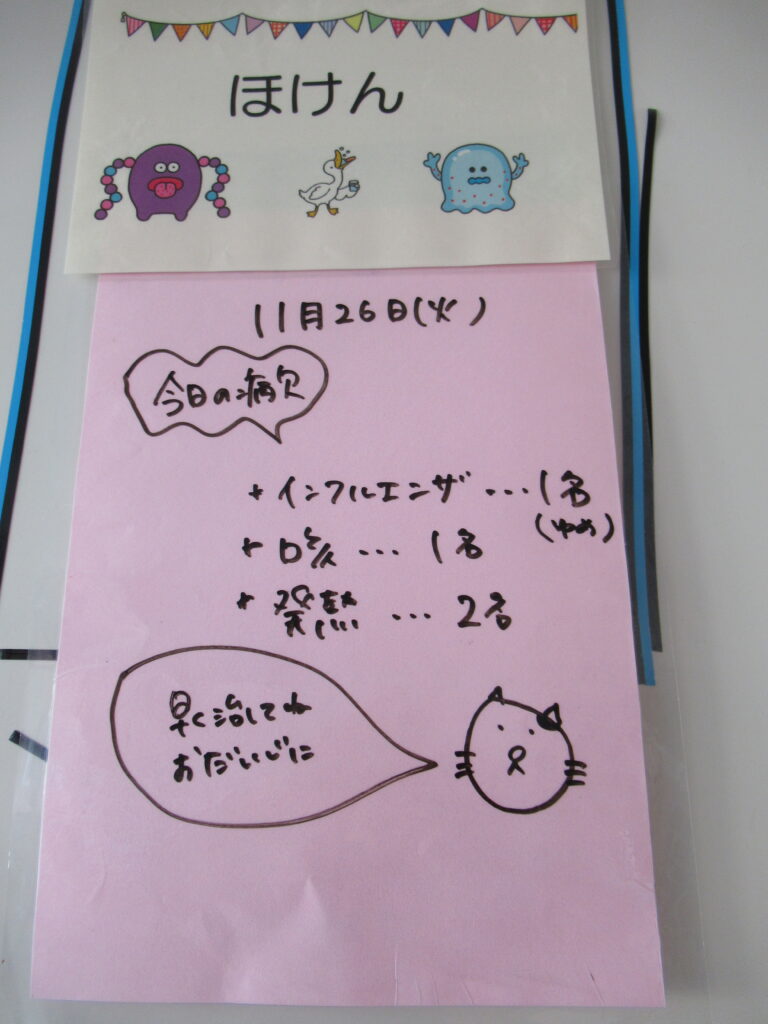 ほけん
11月26日(火)
今日の病欠
* インフルエンザ...1名
(ゆめ)
* 咳...1名
* 発熱...2名
早く治してね
おだいじに